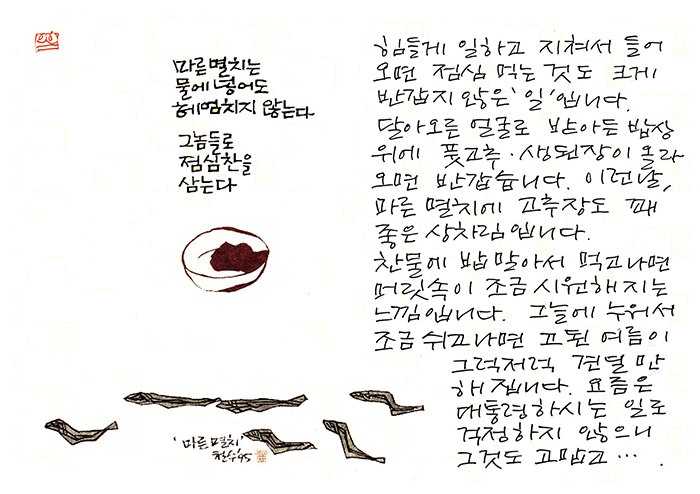 마른멸치는
물에 넣어도
헤엄치지 않는다
그놈들로
점심찬을
삼는다
'마른멸치'
철수 '95
힘들게 일하고 지쳐서 들어
오면 점심 먹는 것도 크게
반갑지 않은 '일'입니다.
달아오른 얼굴로 받아든 밥상
위에 풋고추·생된장이 올라
오면 반갑습니다. 이런날,
마른 멸치에 고추장도 꽤
좋은 상차림입니다.
찬물에 밥 말아서 먹고나면
머릿속이 조금 시원해지는
느낌입니다. 그늘에 누워서
조금 쉬고나면 고된 여름이
그럭저럭 견딜 만
해집니다. 요즘은
대통령하시는 일로
걱정하지 않으니
그것도 고맙고 ….